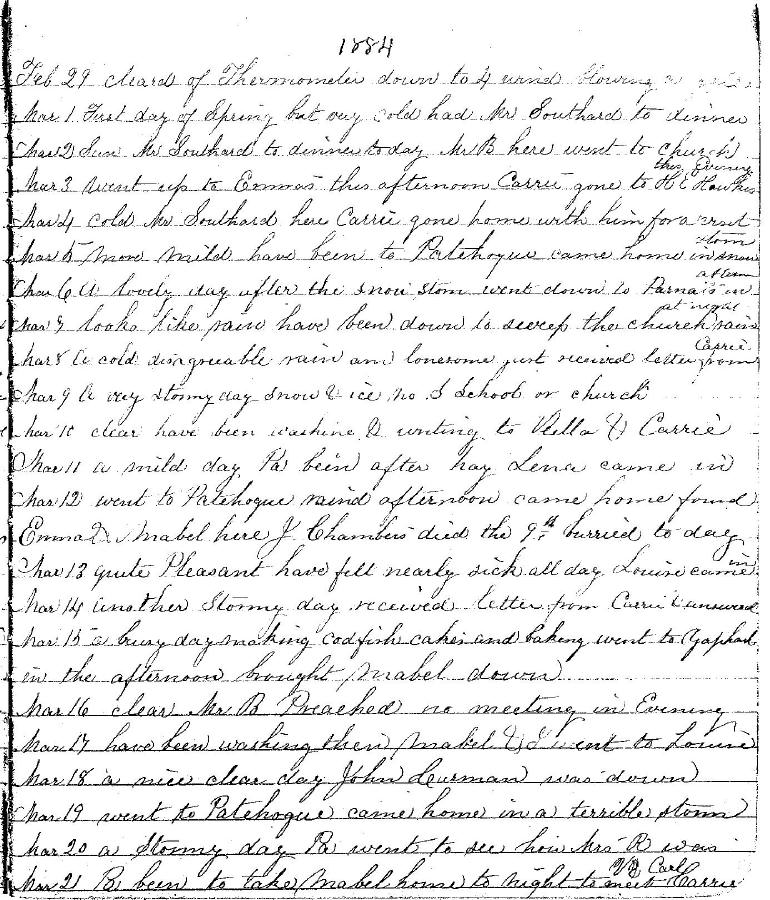 1884
Feb 29 cleard of Thermometer down to 4 wind blowing a
Mar 1 First day of Spring but very cold had Mr Southard to dinner
Mar 2 Sun Mr Southard to dinner today Mr B here went to church
this Evening
Mar 3 went up to Emmas this afternoon Carrie gone to H E Hawkins
Mar 4 cold Mr Southard here Carrie gone home with him for a visit
storm
Mar 5 More mild have been to Patchogue came home in snow
Mar 6 A lovely day after the snow stom went down to in
at night
Mar 7 looks like rain have been down to sweep the church rain
Carrie
Mar 8 A cold disagreeable rain am lonesome just received letter from
Mar 9 A very stormy day snow & ice no S School or church
Mar 10 clear have been washing & writing to & Carrie
Mar 11 a mild day Pa been after hay Lena came in
Mar 12 went to Patchogue afternoon came home found
Emma & Mabel here J Chambers died the 9th burried to day
in
Mar 13 quite Pleasant have felt nearly sick all day Louise came
Mar 14 another Stormy day received letter from Carrie & answered
Mar 15 a busy day making codfish cakes and baking went to Yaphank
in the afternoon brought Mabel down
Mar 16 clear Mr B Preached no meeting in Evening
Mar 17 have been washing then Mabel & I went to Louise
Mar 18 a nice clear day John was down
Mar 19 went to Patchogue came home in a terrible storm
Mar 20 a Stormy day Pa went to see how Mrs R was
Carl
Mar 21 Pa been to take Mabel home to night to meet Carrie